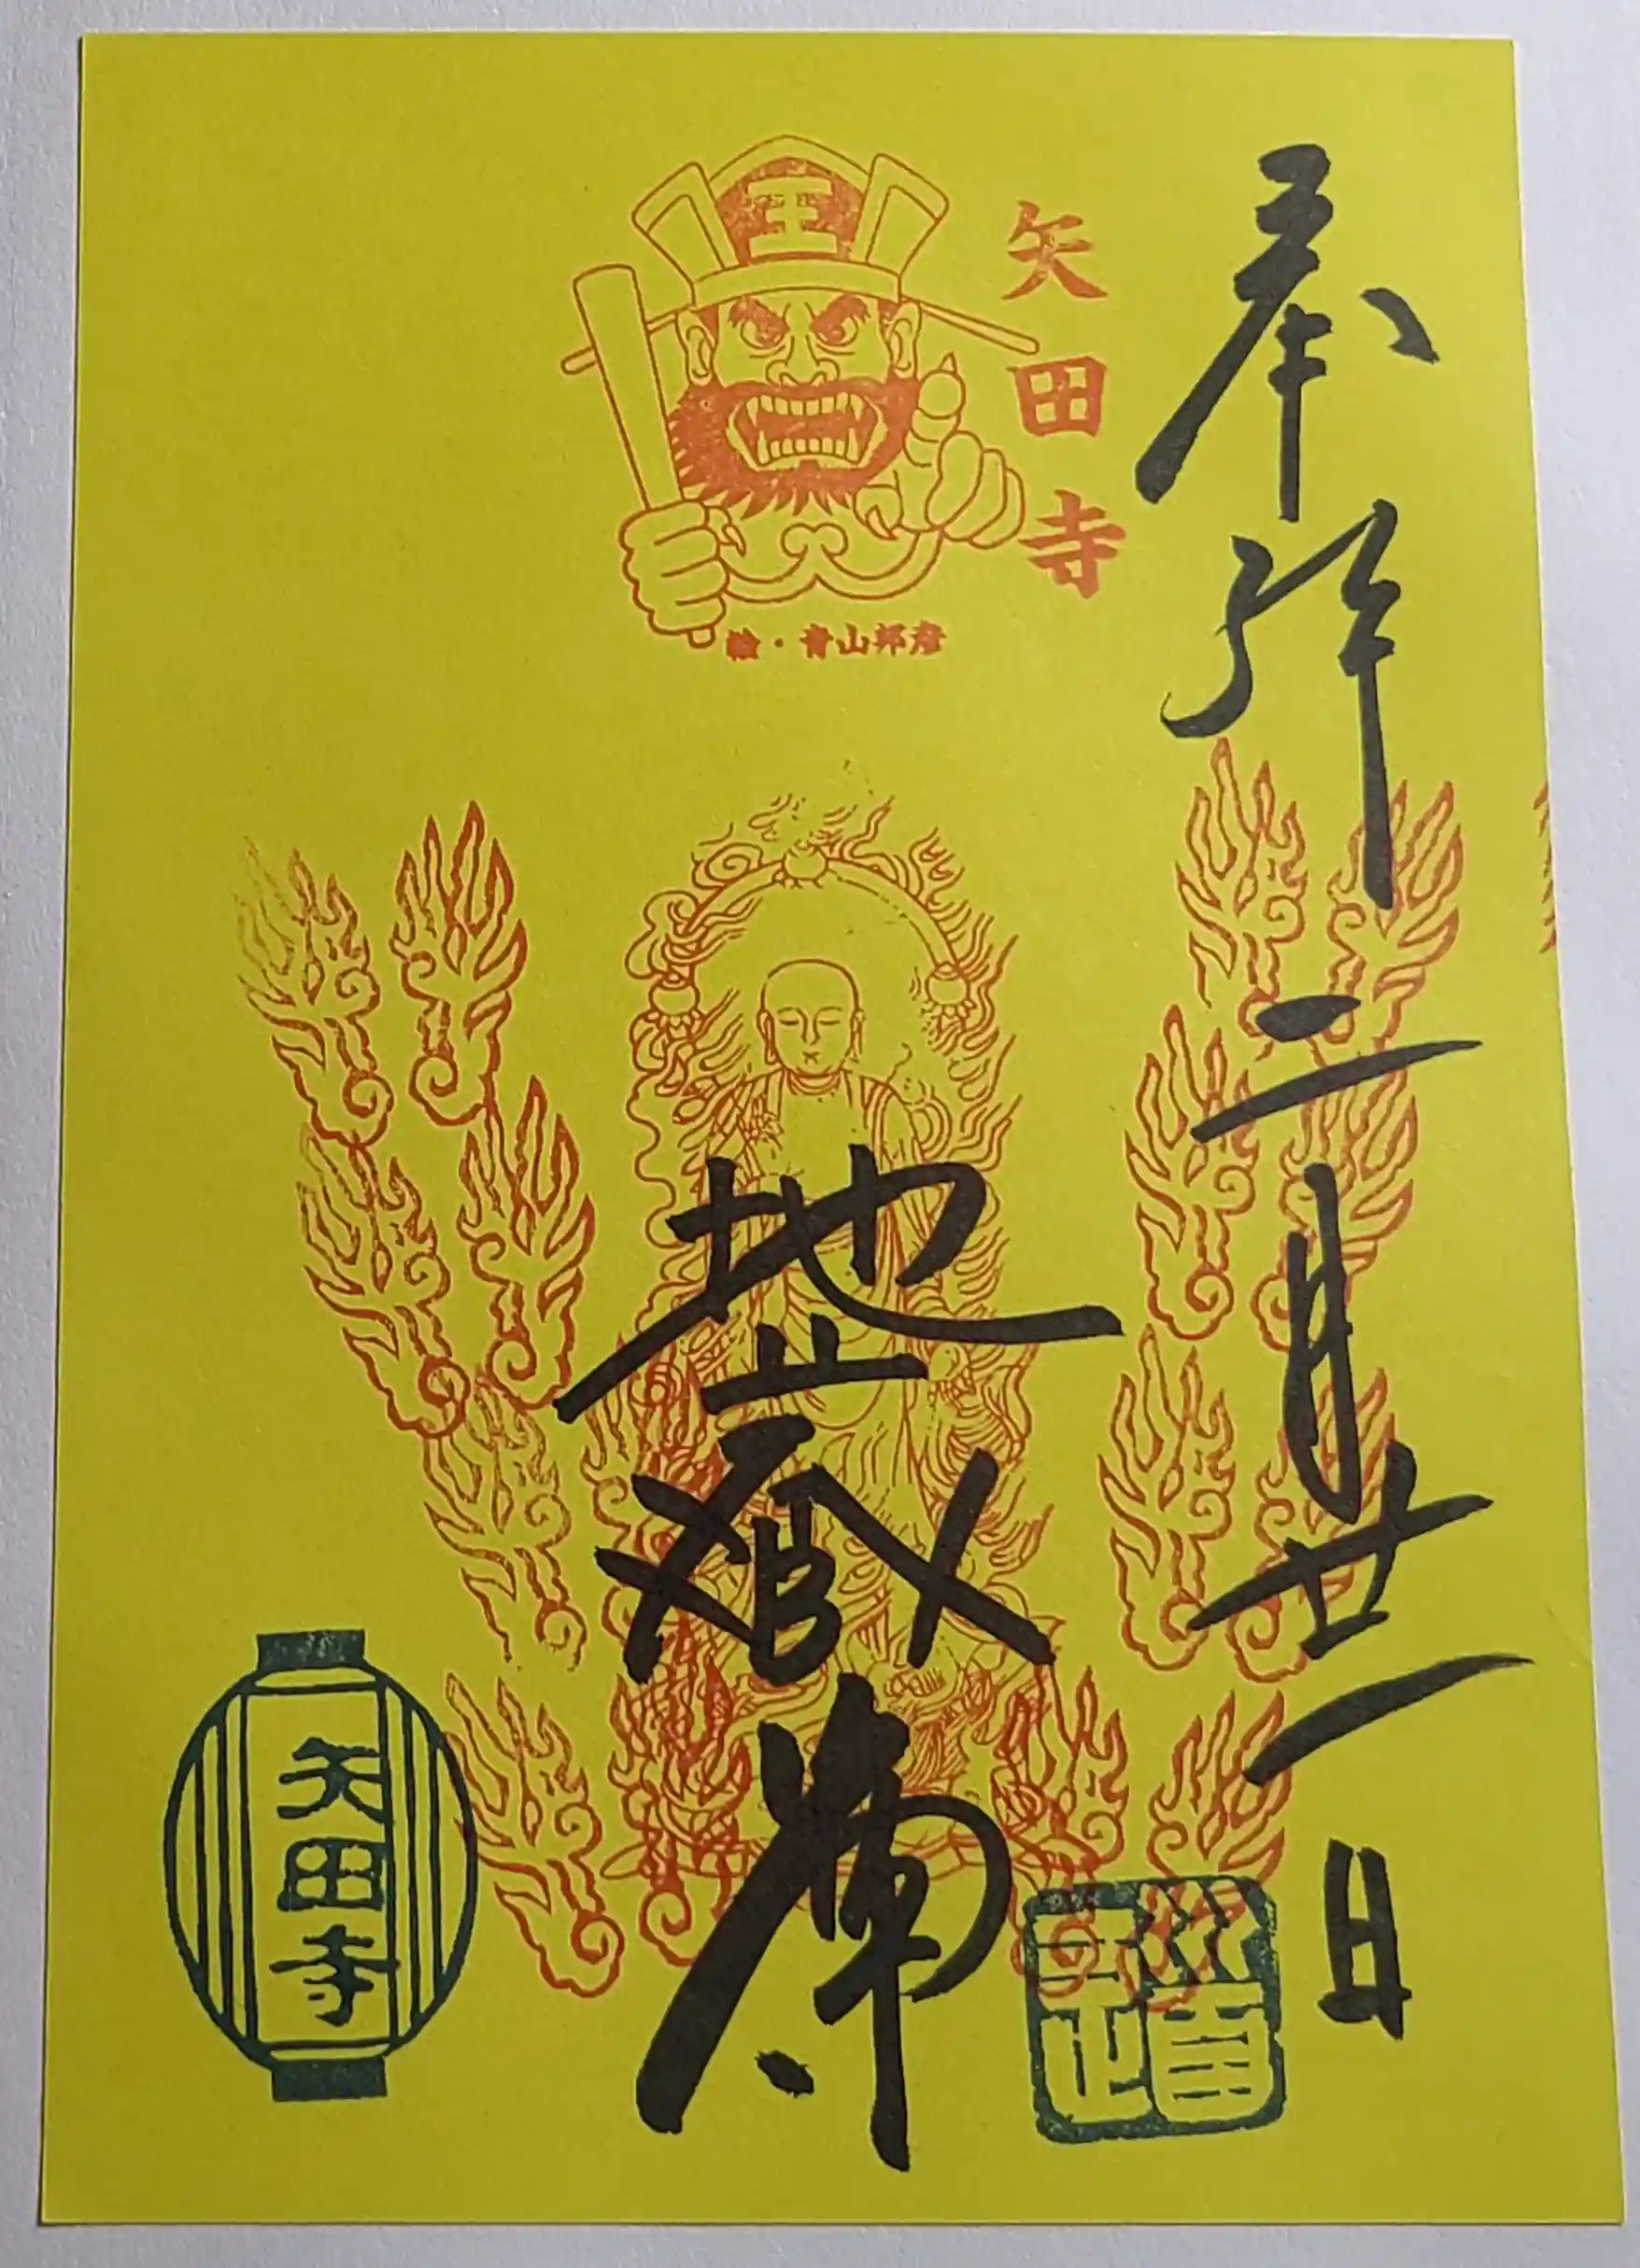 奉拝 二月廿一日
矢田寺
王
絵・青山邦彦
地蔵尊
矢田寺